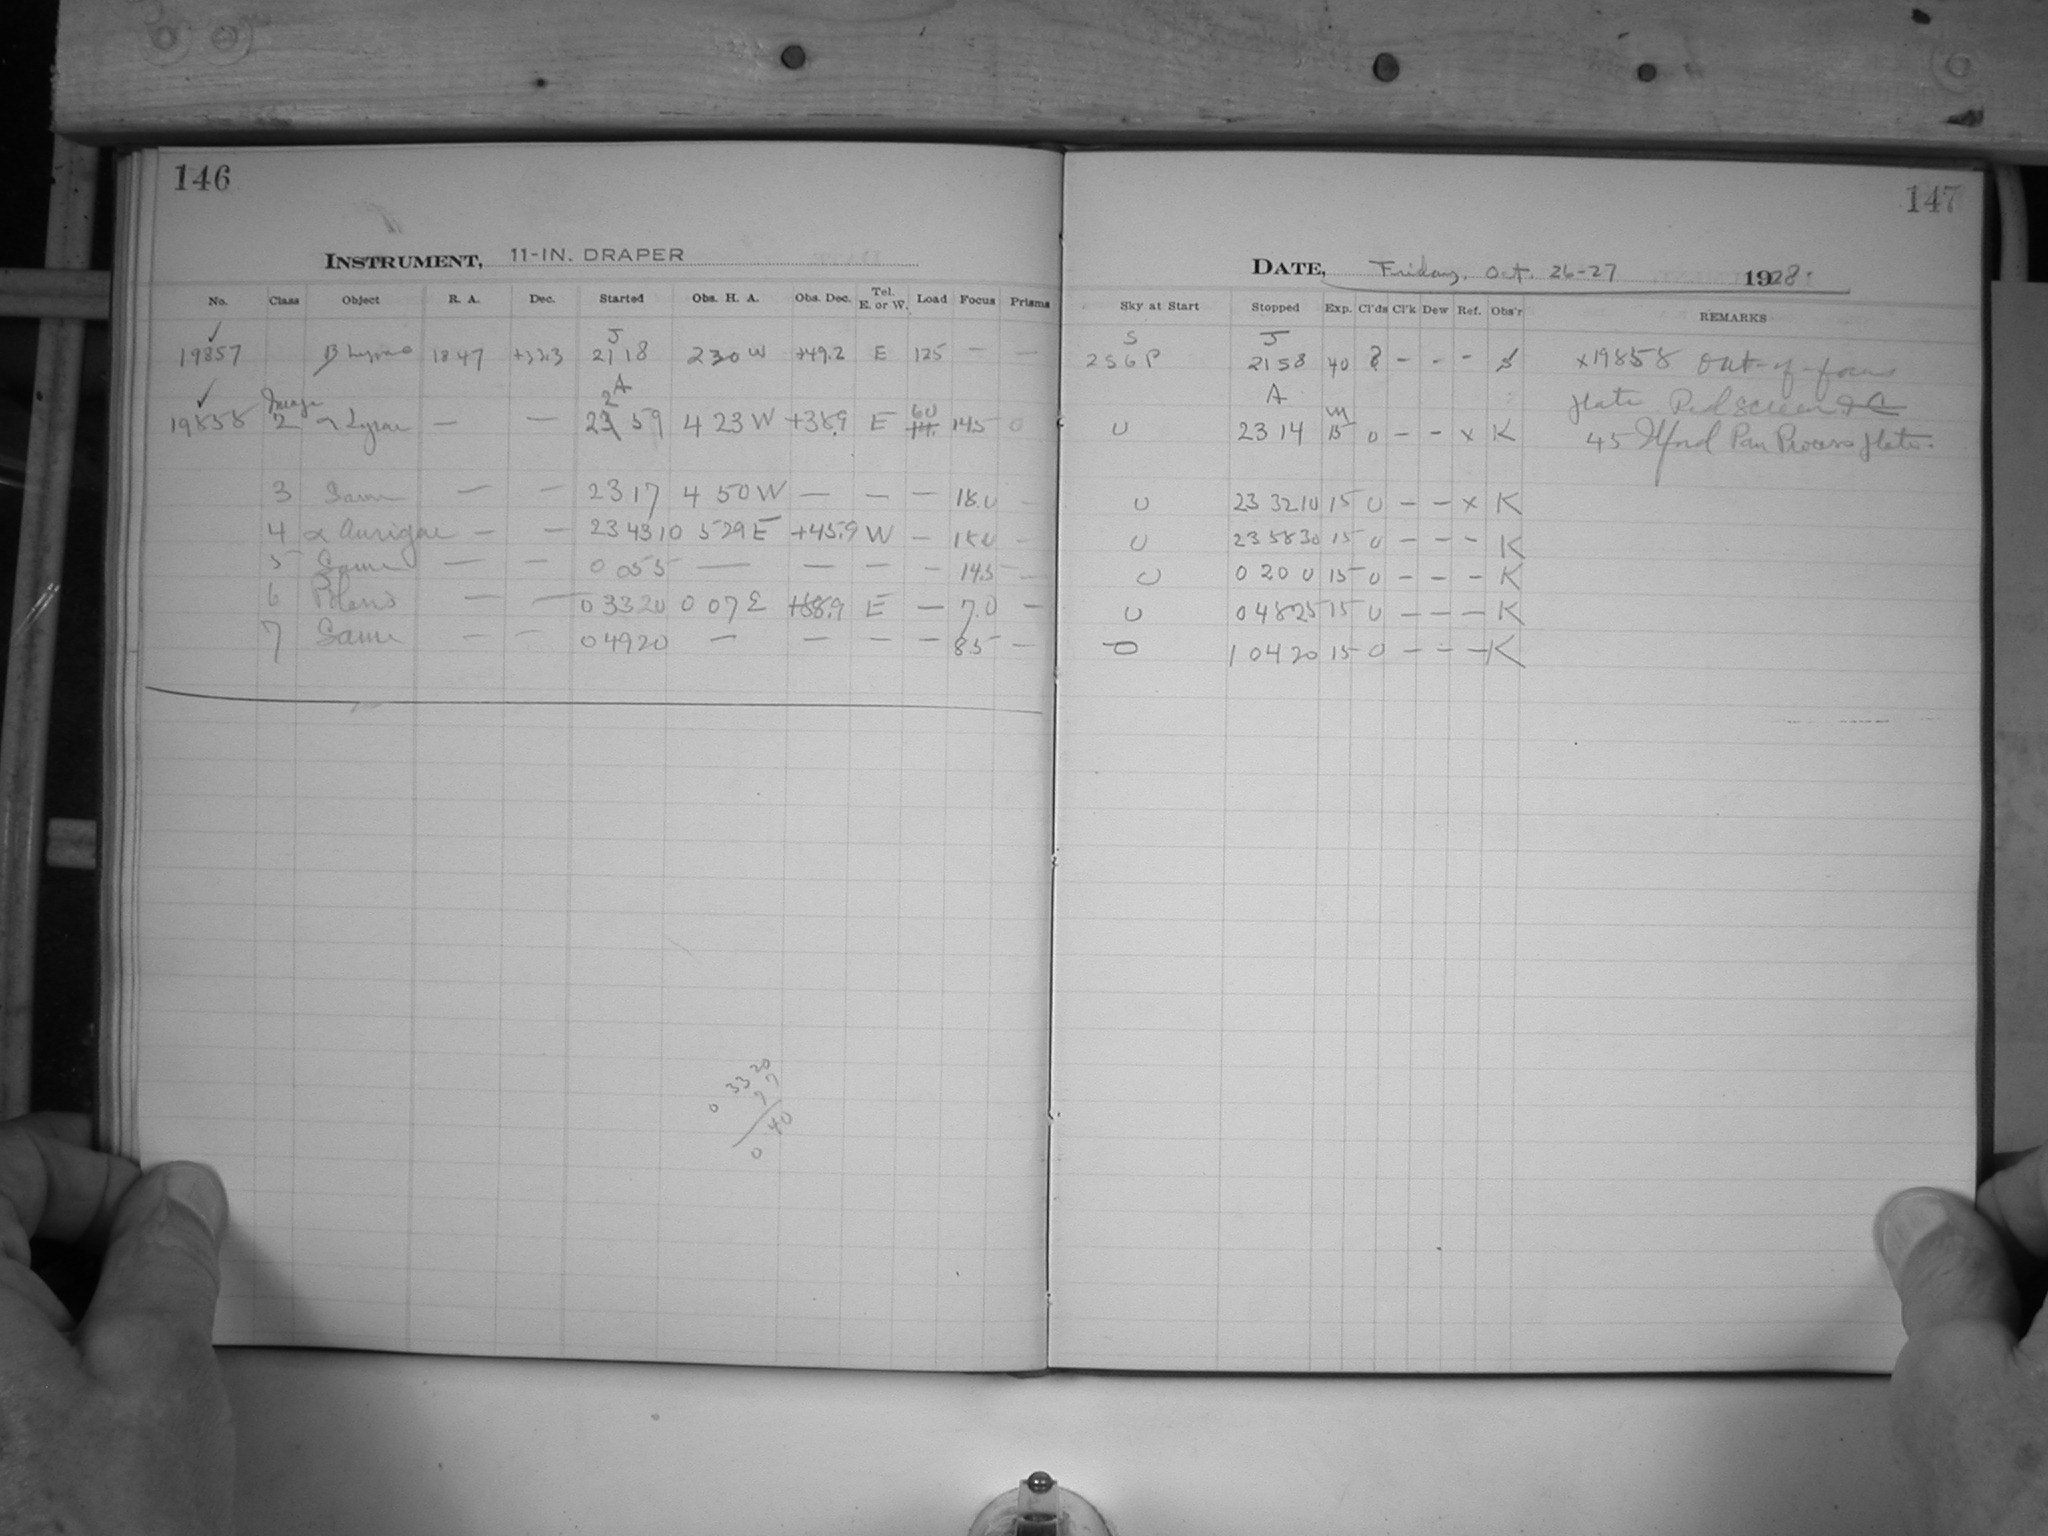 146
INSTRUMENT, 11-IN. DRAPER
No. Class Object R. A. Dec. Started Obs. H. A. Obs. Dec. Tel. E. or W. Load Focus Prisms
✓ J
19857 β Lyrae 18 47 +33.3 21 18 2 30 W +49.2 E 125 — —
✓ Image 2 A 60
19858 2 α Lyrae — — 23 59 4 23 W +38.9 E 14.5 0
3 Same — — 23 17 4 50 W — — — 18.0 —
4 α Aurigae — — 23 43 10 5 29 E +45.9 W — 18.0 —
5 Same — — 0 0 55 — — — — 14.5 —
6 Polaris — — 0 33 20 0 07 E +88.9 E — 7.0 —
7 Same — — 0 49 20 — — — — 8.5 —
0 33 20
7 7
0 40
147
DATE, Friday, Oct. 26-27 1928
Sky at Start Stopped Exp. Cl'ds Cl'k Dew Ref. Obs'r REMARKS
S J
2 S G P 21 58 40 ? - - - x19858 Out-of-focus
A m plate Red screen
U 23 14 15 0 - - x K 45 Ilford Pan Process plate.
U 23 32 10 15 0 - - x K
U 23 58 30 15 0 - - - K
U 0 20 0 15 0 - - - K
U 0 48 25 15 0 - - - K
1 04 20 15 0 - - - K